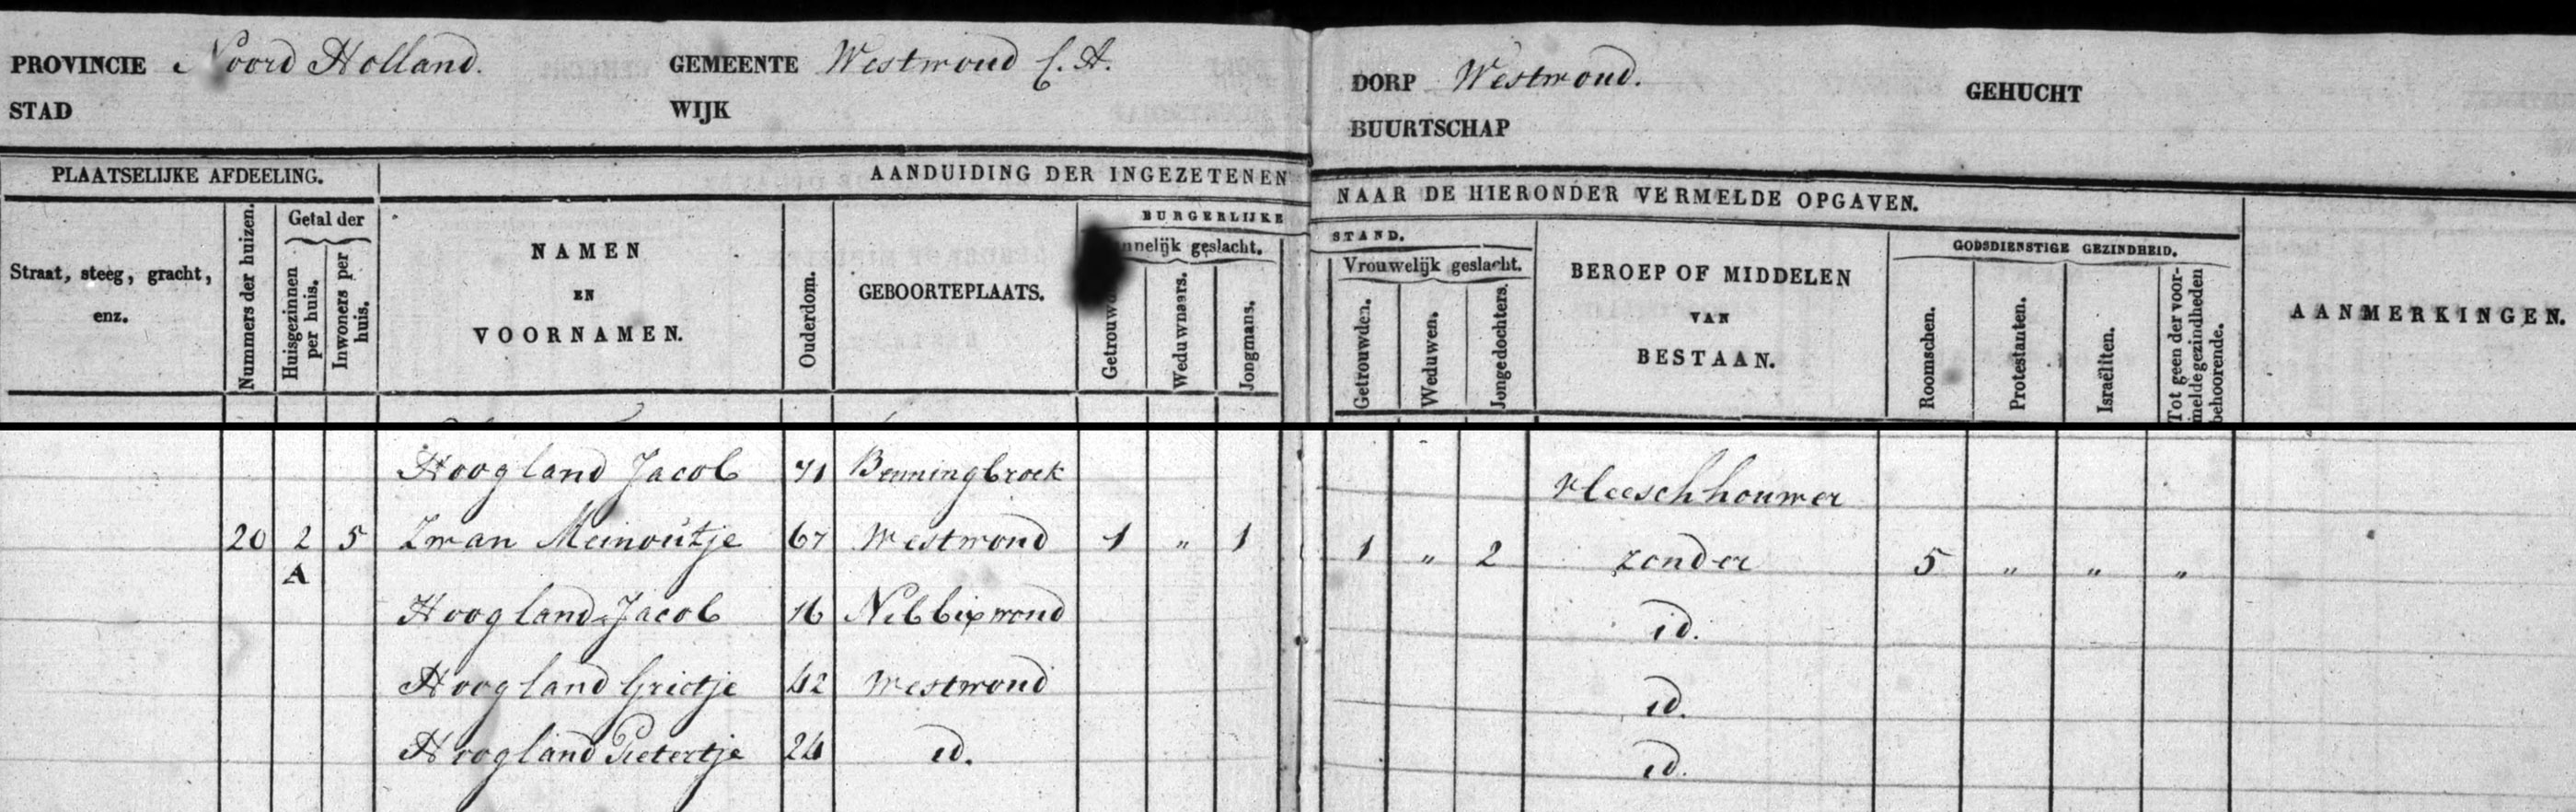 PROVINCIE Noord Holland. GEMEENTE Westwoud C. A. DORP Westwoud. GEHUCHT
STAD WIJK BUURTSCHAP
PLAATSELIJKE AFDEELING. AANDUIDING DER INGEZETENEN NAAR DE HIERONDER VERMELDE OPGAVEN.
Straat, steeg, gracht, enz.
Nummers der huizen.
Getal der
Huisgezinnen per huis.
Inwoners per huis.
NAMEN
EN
VOORNAMEN.
Ouderdom.
GEBOORTEPLAATS.
BURGERLIJKE STAND.
nnelijk geslacht.
Getrouw
Weduwnaars.
Jongmans.
Vrouwelijk geslacht.
Getrouwden.
Weduwen.
Jongedochters.
BEROEP OF MIDDELEN
VAN
BESTAAN.
GODSDIENSTIGE GEZINDHEID.
Roomschen.
Protestanten.
Israëliten.
Tot geen der voor-
meldegezindheden
behoorende.
AANMERKINGEN.
Hoogland Jacob 71 Benningbroek vleeschhouwer
20 2 5 Zwan Meinoutje 67 Westwoud 1 " 1 1 " 2 zonder 5 " " "
A
Hoogland Jacob 16 Nibbixwoud id.
Hoogland Grietje 42 Westwoud id.
Hoogland Pietertje 24 id. id.